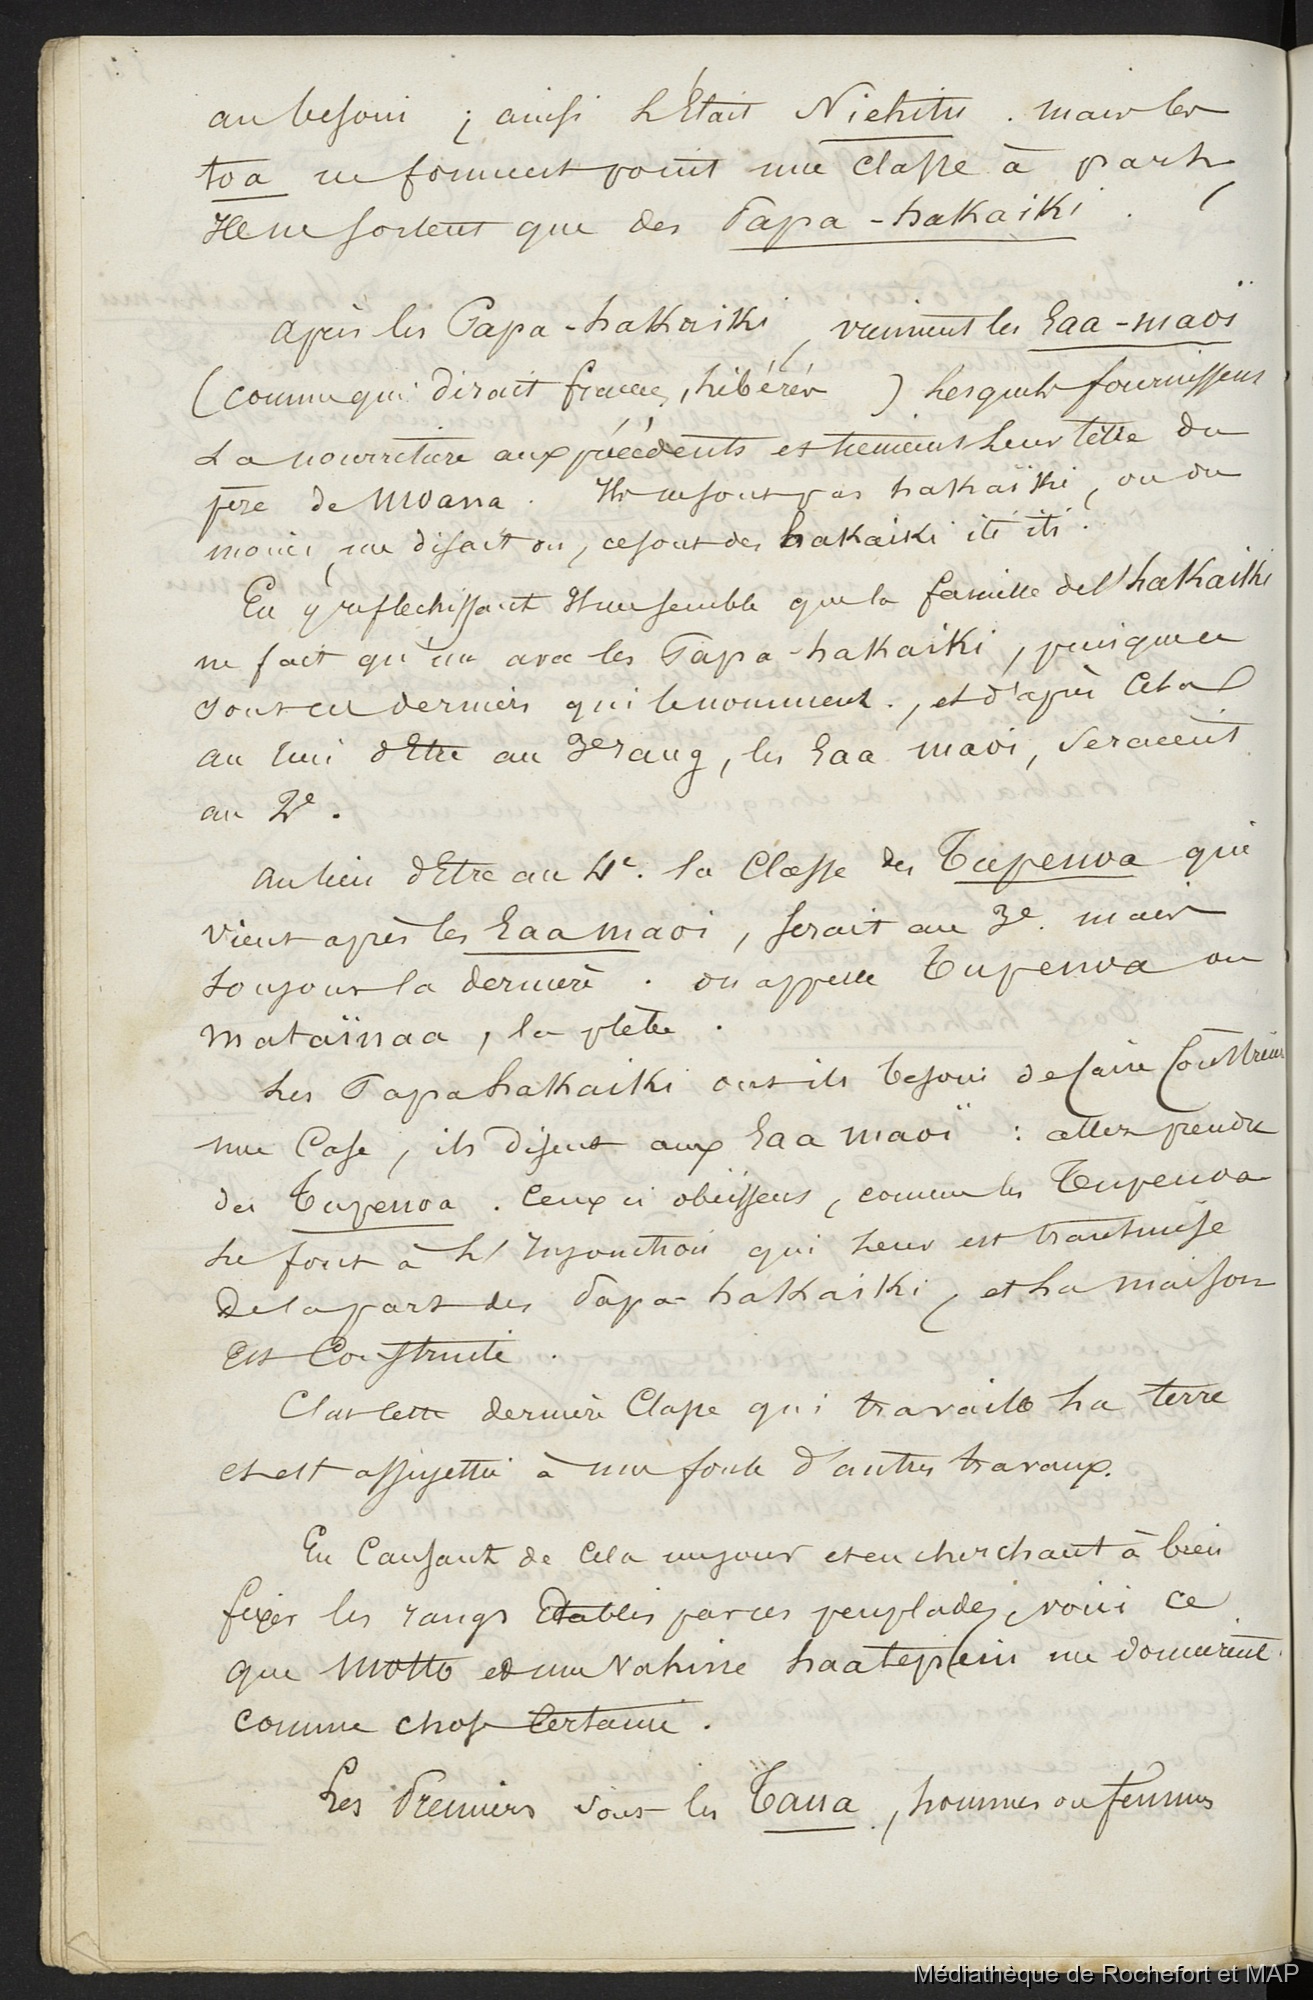 au besoin ; ainsi L'Était Niehitu . mais les
toa ne forment point une classe à part
Ils ne sortent que des Papa-hakaïki .
après les Papa-hakaiki, viennent les Eaa-maoï
(comme qui dirait francs, Libérés ) Lesquels fournissent
La nourriture aux précédents et tiennent Leur titre du
père de Moana . Ils ne sont pas hakaïki, ou du
moins, me disait on, ce sont des hakaiki iti iti .
En y reflechissant Il me semble que la famille de l'hakaiki
ne fait qu'un avec les Papa-hakaiki, puisque ce
sont ces derniers qui le nomment ., et d'après Cela
au lieu d'Etre au 3e rang, les Eaa maoi, seraient
au 2e .
au lieu d'Etre au 4e. la Classe des Tupenoa qui
vient après les Eaa maoi, serait au 3e. mais
toujours la dernière . on appelle Tupenoa ou
mataïnaa, la plèbe .
Les Papa hakaiki ont ils besoin de faire Construire
une Case, ils disent aux Eaa maoï : allez prendre
des Tupenoa . Ceux ci obéissent, comme les Tupenoa
Le font à L'Injonction qui Leur est transmise
De la part des Papa-hakaiki, et La maison
Est Construite .
C'est Cette dernière Classe qui travaille La terre
et est assujettie à une foule d'autres travaux.
En Causant de Cela un jour et en cherchant à bien
fixer les rangs Etablis par ces peuplades, voici ce
que Motto et une Vahine haatepeiu me donnèrent
comme chose Certaine .
Les Premiers sont les Taua, hommes ou femmes
Médiathèque de Rochefort et MAP